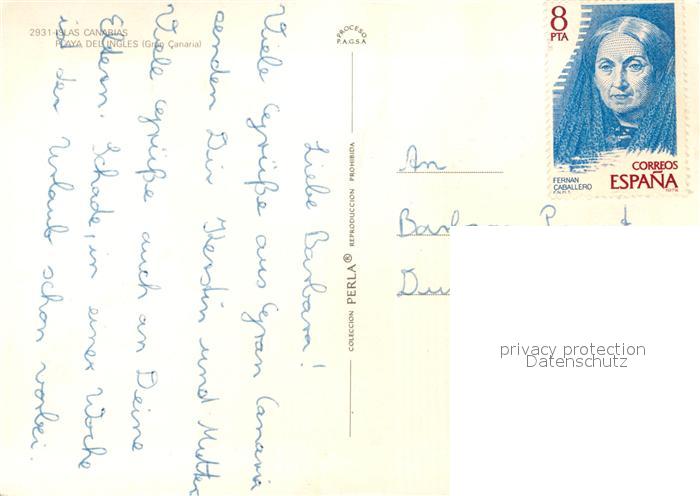 2931-ISLAS CANARIAS
PLAYA DEL INGLES (Gran Canaria)
Liebe Barbara!
Viele Grüße aus Gran Canaria
senden Dir Kerstin und Mutter
Viele Grüße auch an Deine
Eltern. Schade, in einer Woche
ist der Urlaub schon vorbei.
PROCESO
P.A.G.S.A
COLECCION PERLA® REPRODUCCION PROHIBIDA
8
PTA
FERNAN
CABALLERO
CORREOS
ESPAÑA
An
privacy protection
Datenschutz